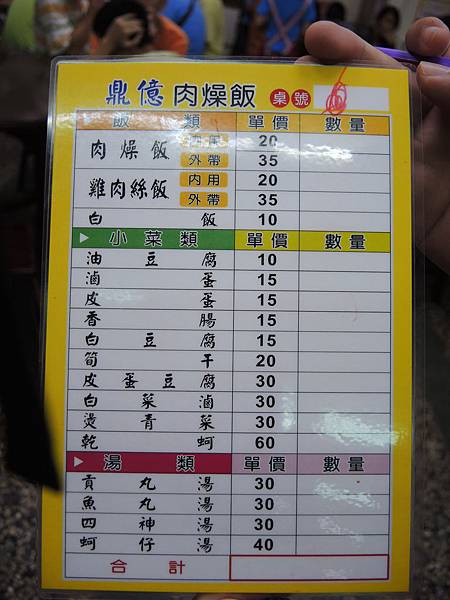 鼎億 肉燥飯 桌號
飯類 單價 數量
肉燥飯 內用 20
外帶 35
雞肉絲飯 內用 20
外帶 35
白飯 10
小菜類 單價 數量
油豆腐 10
滷蛋 15
皮蛋 15
香腸 15
白豆腐 15
筍干 20
皮蛋豆腐 30
白菜滷 30
燙青菜 30
乾蚵 60
湯類 單價 數量
貢丸湯 30
魚丸湯 30
四神湯 30
蚵仔湯 40
合計